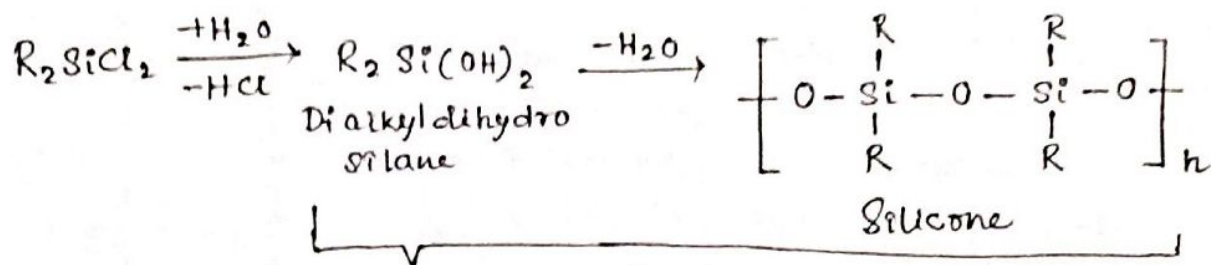 R₂SiCl₂ +H₂O -HCl → R₂ Si(OH)₂ -H₂O → [-O-Si(R)(R)-O-Si(R)(R)-O-]n
Dialkyldihydro
silane
Silicone